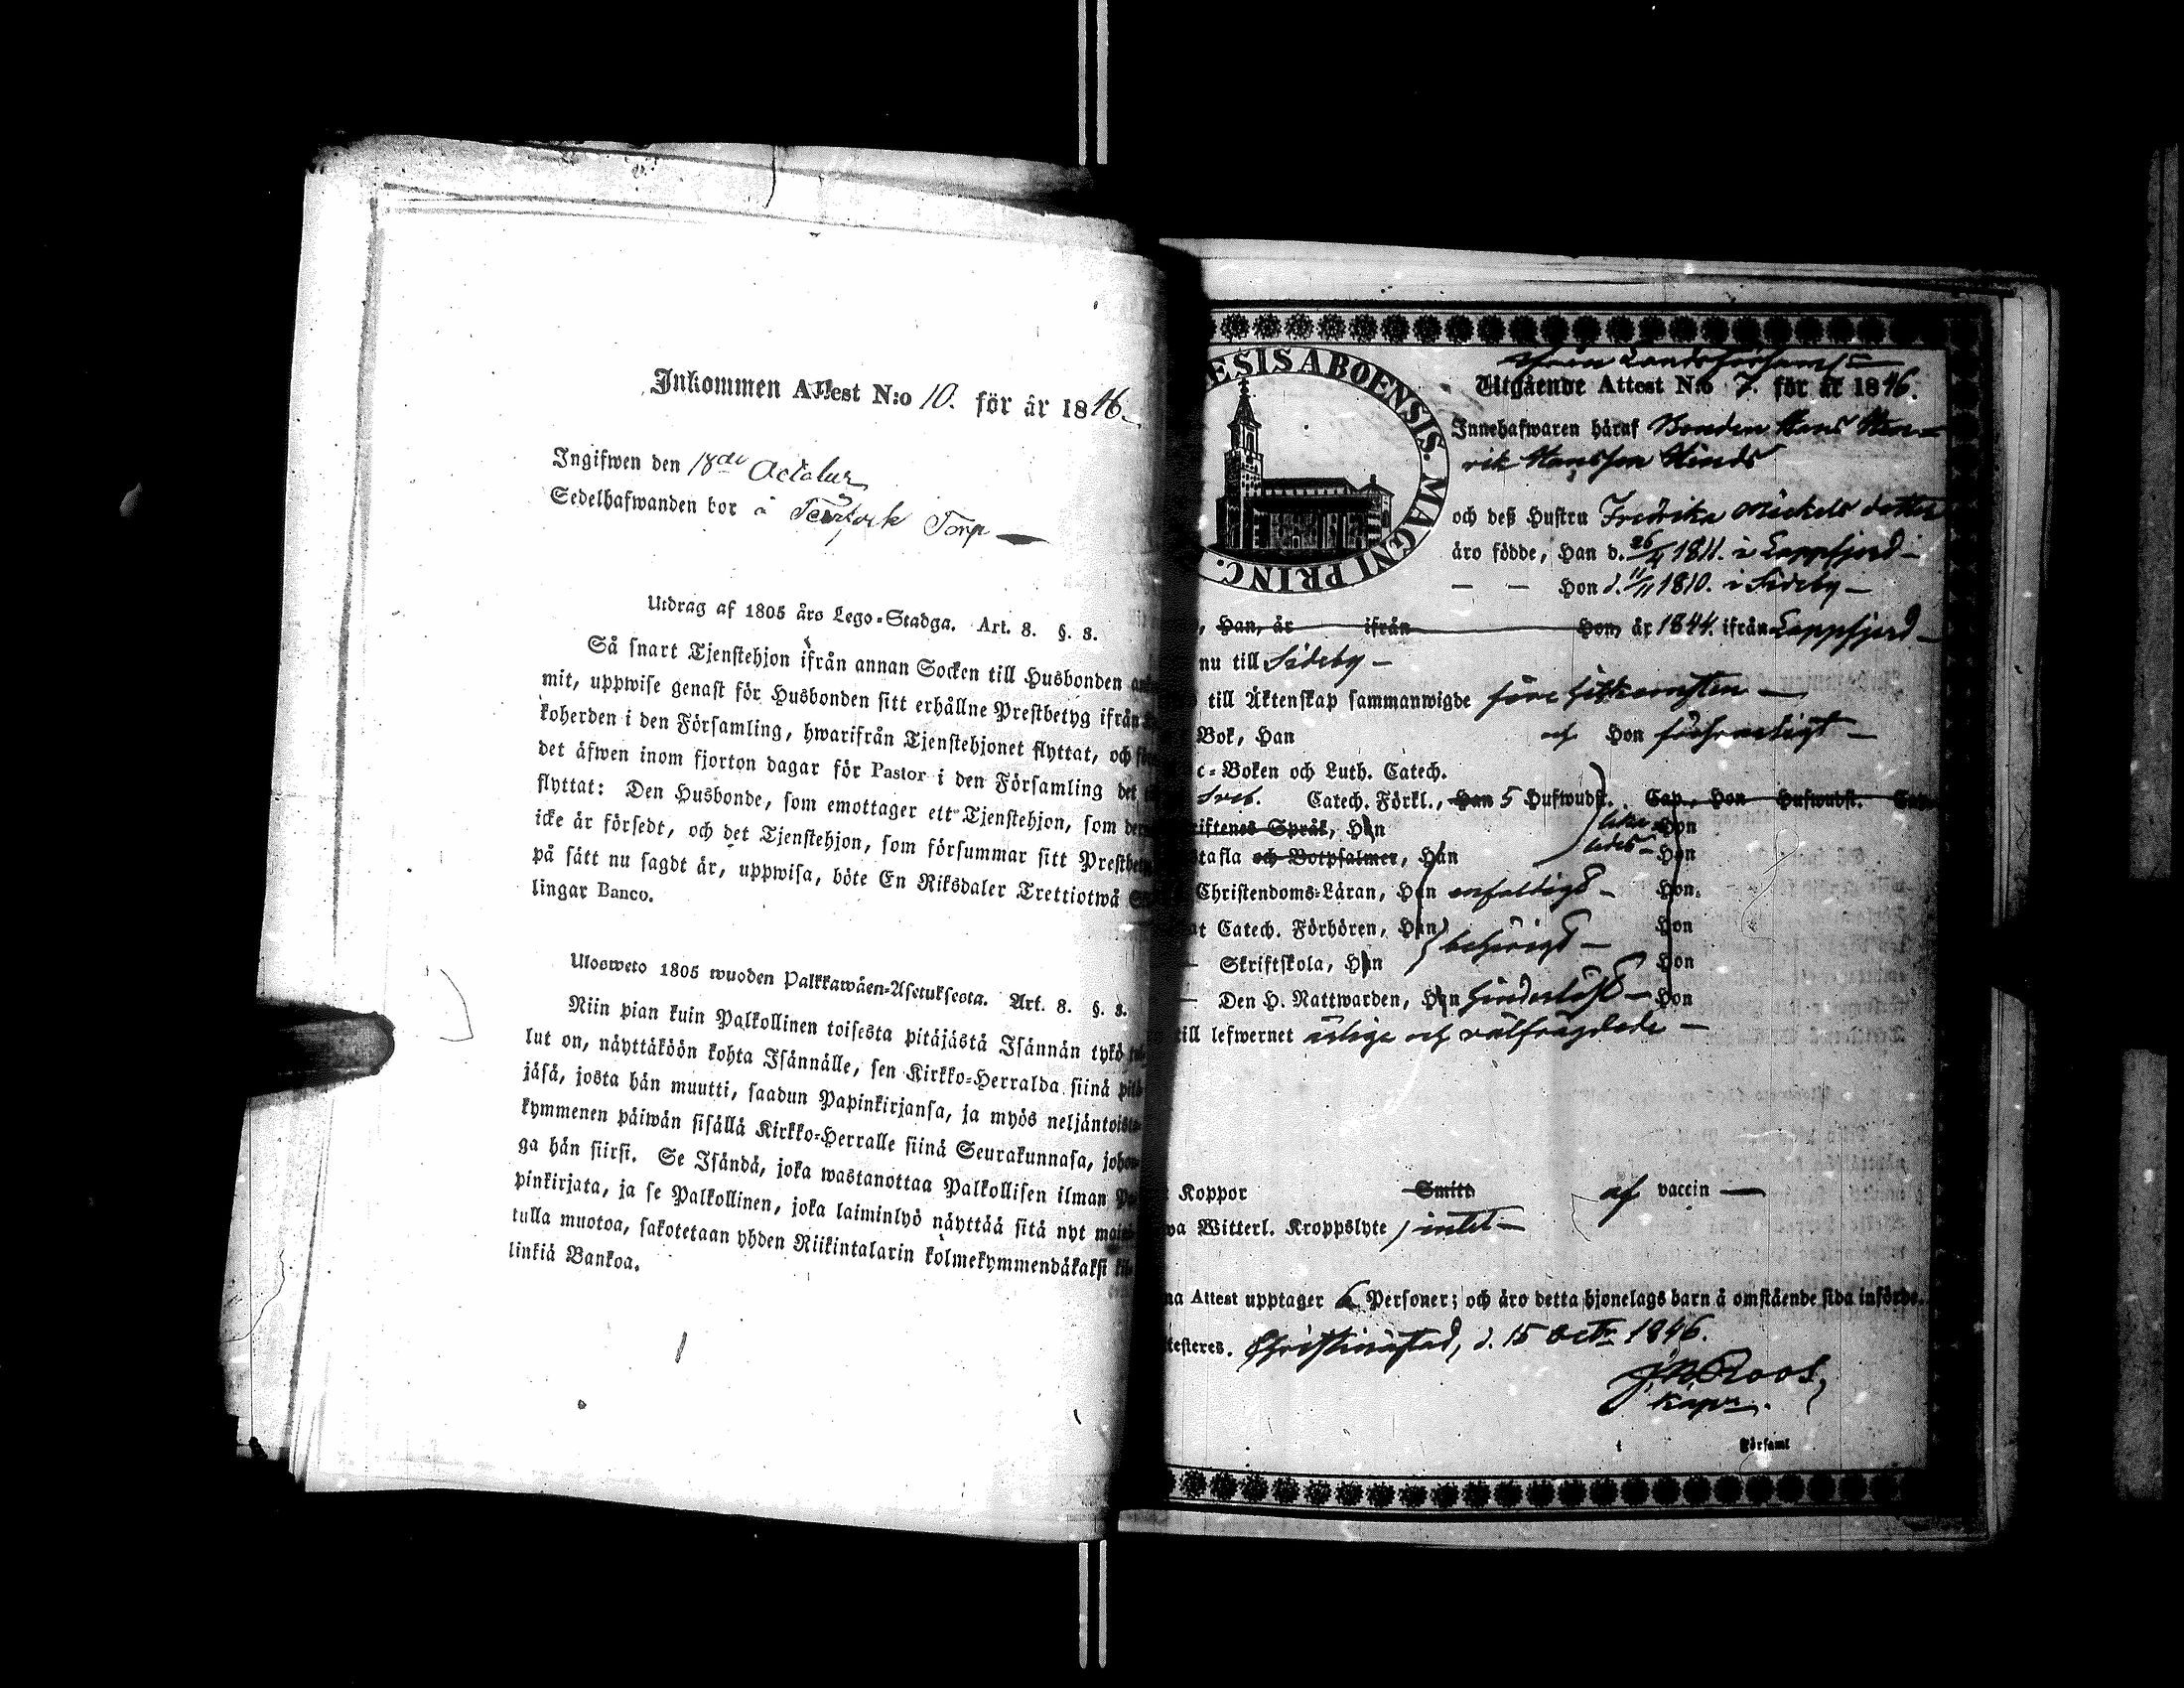 Inkommen Attest N:o 10. för år 1846.
Ingifwen den 18de October
Sedelhafwanden bor å Torp
Utdrag af 1805 års Lego-Stadga. Art. 8. §. 8.
Så snart Tjenstehjon ifrån annan Socken till Husbonden
mit, uppwise genast för Husbonden sitt erhållne Prestbetyg ifrån
koherden i den Församling, hwarifrån Tjenstehjonet flyttat, och
det äfwen inom fjorton dagar för Pastor i den Församling det
flyttat: Den Husbonde, som emottager ett Tjenstehjon, som
icke är försedt, och det Tjenstehjon, som försummar sitt
på sätt nu sagdt är, uppwisa, böte En Riksdaler Trettiotwå
lingar Banco.
Uloosweto 1805 wuoden Palkkawäen-Asetuksesta. Art. 8. §. 8.
Niin pian kuin Palkollinen toisesta pitäjästä Isännän tykö
lut on, näyttäköön kohta Isännälle, sen Kirkko-Herralda siinä
jäsä, josta hän muutti, saadun Papinkirjansa, ja myös
kymmenen päiwän sisällä Kirkko-Herralle siinä Seurakunnasa,
ga hän siirsi. Se Isändä, joka wastanottaa Palkollisen ilman
pinkirjata, ja se Palkollinen, joka laiminlyö näyttää sitä nyt
tulla muotoa, sakotetaan yhden Riikintalarin kolmekymmendäkaksi
linkiä Bankoa.
ESIS ABOENSIS. MAGNI PRINC.
Utgående Attest N:o 7. för år 1846.
Innehafwaren häraf Bonden Hans Hen-
rik Hansson
och deß Hustru Fredrika Mickelsdotter
äro födde, Han d. 1811. i Lappfjerd
Hon d. 11/11 1810. i Sideby
Han, år ifrån Hon, år 1844. ifrån Lappfjerd
nu till Sideby
till Äktenskap sammanwigde före hitkomsten
Bok, Han och Hon försvarligt
c-Boken och Luth. Catech.
Catech. Förkl., Han 5 Hufwudst. Cap., Hon Hufwudst.
riftenes Språk, Han Hon
stafla och Botpsalmer, Han Hon
Christendoms-Läran, Han enfaldigt Hon
at Catech. Förhören, Han behörigt Hon
Skriftskola, Han Hon
Den H. Nattwarden, Han hinderlöst Hon
till lefwernet ärlige och välfrägdade
Koppor Smitt af vaccin
wa Witterl. Kroppslyte intet
na Attest upptager 6 Personer; och äro detta hjonelags barn å omstående sida införde.
testeres. Christinestad, d. 15 Octr 1846.
Roos,
Församl